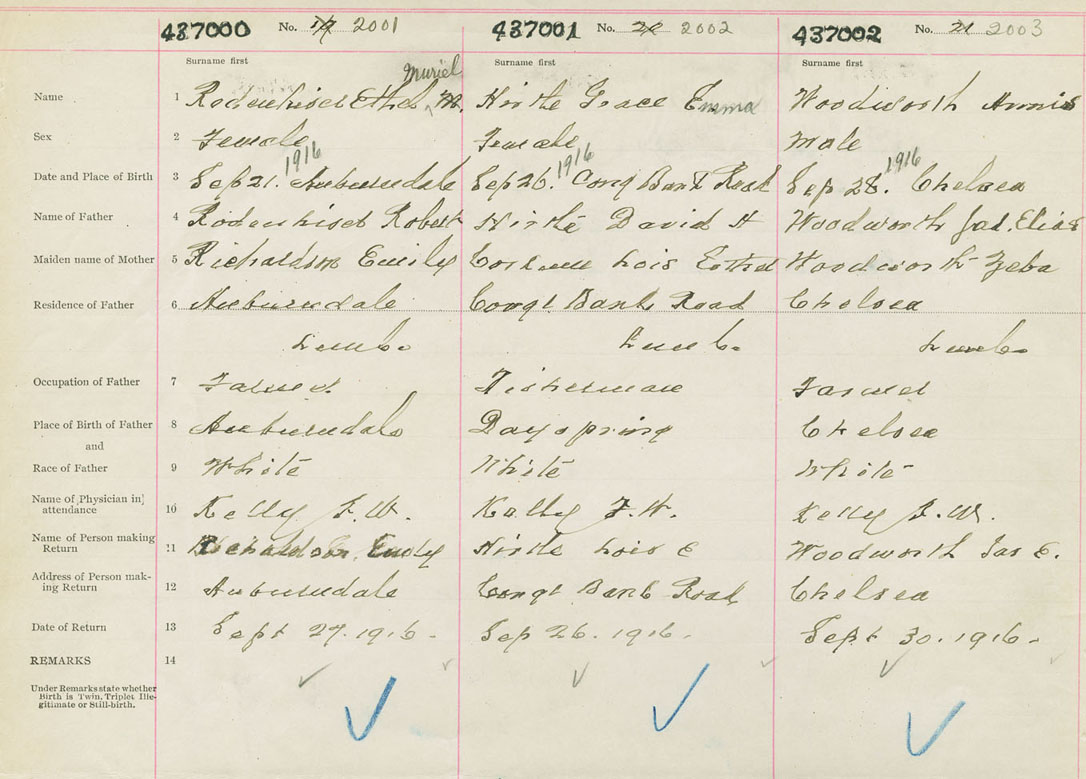 437000 No. 19 2001 437001 No. 20 2002 437002 No. 21 2003
Surname first Surname first Surname first
Muriel
Name 1 Rodenhiser Ethel M. Hirtle Grace Emma Woodworth Annis
Sex 2 Female Female Male
1916 1916 1916
Date and Place of Birth 3 Sep 21. Auburndale Sep 26. Conq Bank Road Sep 28. Chelsea
Name of Father 4 Rodenhiser Robert Hirtle David H Woodworth Jas. Elias
Maiden name of Mother 5 Richardson Emily Lois Esther Woodworth Zeba
Residence of Father 6 Auburndale Conqt. Bank Road Chelsea
Lunb. Lunb. Lunb.
Occupation of Father 7 Farmer. Fisherman Farmer
Place of Birth of Father 8 Auburndale Dayspring Chelsea
and
Race of Father 9 White White White
Name of [Physician in] 10 Kelly F.W. Kelly F.W. Kelly F.W.
attendance
Name of Person making 11 Richardson Emily Hirtle Lois E Woodworth Jas E.
Return
Address of Person mak- 12 Auburndale Conqt Bank Road Chelsea
ing Return
Date of Return 13 Sept 27. 1916. Sep 26. 1916. Sept 30. 1916.
REMARKS 14
Under Remarks state whether
Birth is Twin, Triplet, Ille-
gitimate or Still-birth.